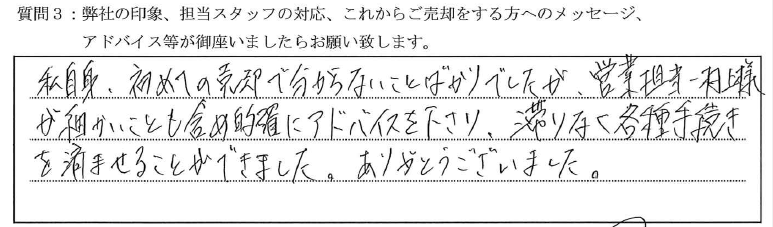 質問3：弊社の印象、担当スタッフの対応、これからご売却をする方へのメッセージ、
アドバイス等が御座いましたらお願い致します。
私自身、初めての売却で分からないことばかりでしたが、営業担当-村上様
が細かいことも含め的確にアドバイスを下さり、滞りなく各種手続き
を済ませることができました。ありがとうございました。